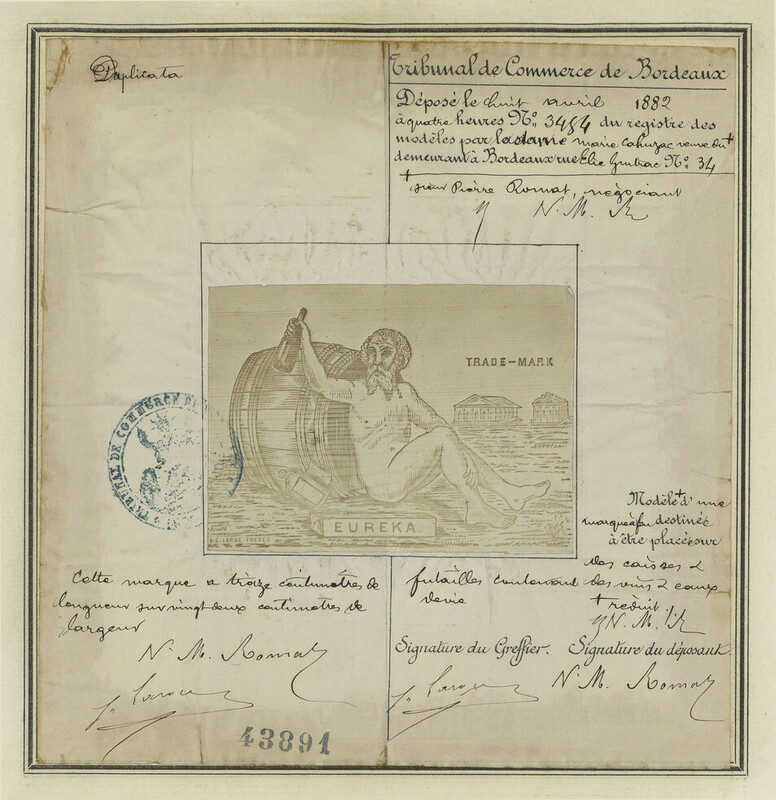 Duplicata
Tribunal de Commerce de Bordeaux
Déposé le huit avril 1882
à quatre heures N° 3484 du registre des
modèles par la dame marie Cahuzac veuve du +
demeurant à Bordeaux rue Elie Gintrac N° 34
+ sieur Pierre Romat, négociant
N. M. R
TRADE-MARK
EUREKA.
TRIBUNAL DE COMMERCE DE
Modèle + d'une
marque à feu destinée
à être placée sur
des caisses &
futailles contenant des vins & eaux
devie
+ réduit
N. M.
Cette marque a treize centimètres de
longueur sur vingt deux centimètres de
largeur
N. M. Romat
Signature du Greffier. Signature du déposant.
N. M. Romat
43891